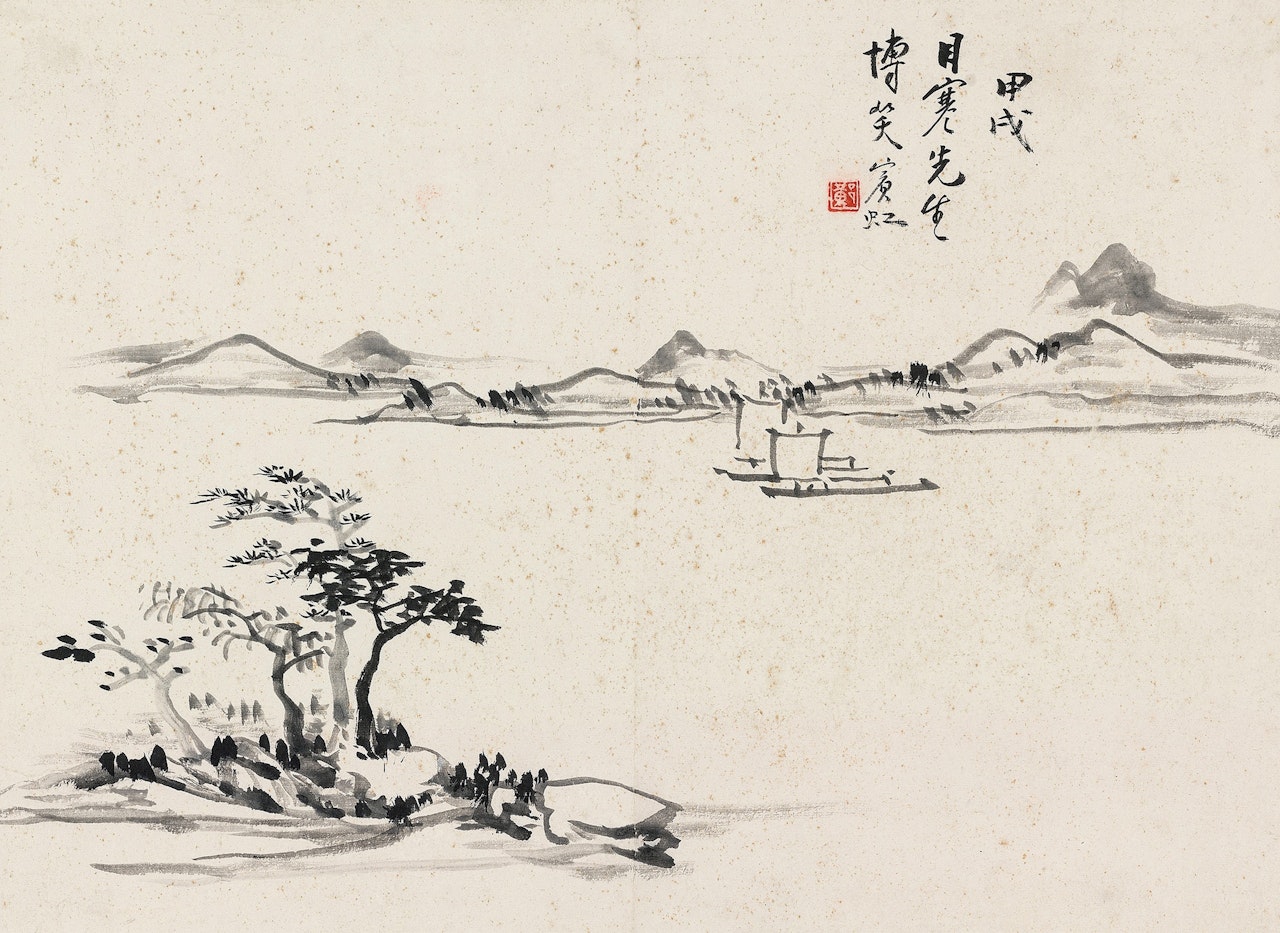 甲戌
目寒先生
博笑賓虹